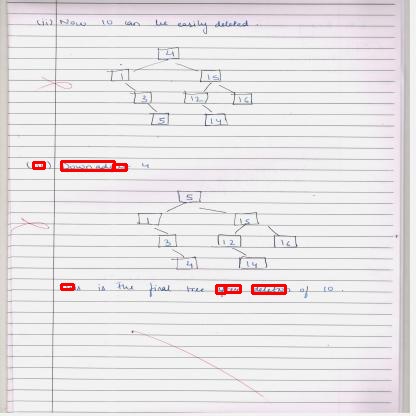 (ii) Now 10 can be easily deleted.
4
1 15
3 12 16
5 14
4
5
1 15
3 12 16
4 14
is the final tree of 10.